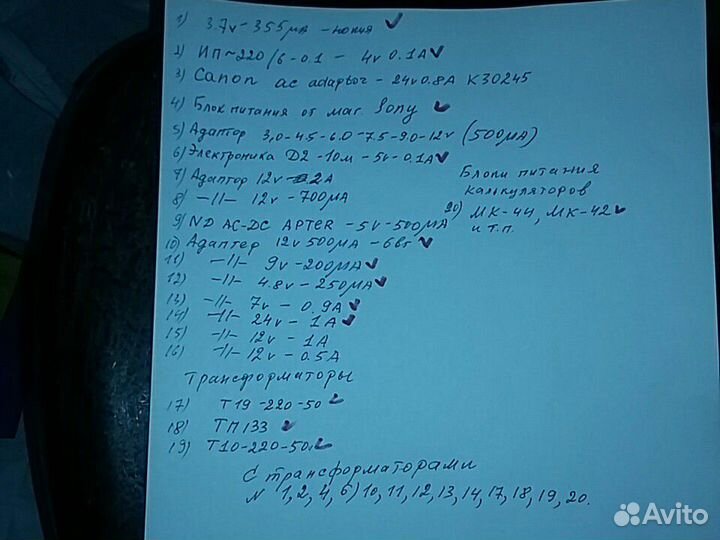 1) 3.7v - 355мА - нокия ✓
2) ИП ~ 220/6-0.1 - 4v 0.1А ✓
3) Canon ac adaptor - 24v 0.8А К30245
4) Блок питания от маг. Sony ✓
5) Адаптор 3,0-4.5-6.0-7.5-9.0-12v (500мА)
6) Электроника Д2-10м - 5v - 0.1А ✓
7) Адаптор 12v - 2А
8) -//- 12v - 700мА
9) ND AC-DC APTER - 5v - 500мА
10) Адаптер 12v 500мА - 6вт ✓
11) -//- 9v - 200мА ✓
12) -//- 4.8v - 250мА ✓
13) -//- 7v - 0.9А ✓
14) -//- 24v - 1А ✓
15) -//- 12v - 1А
16) -//- 12v - 0.5А
Блоки питания
калькуляторов
20) МК-44, МК-42 ✓
и т.п.
Трансформаторы
17) Т19-220-50 ✓
18) ТП133 ✓
19) Т10-220-50 ✓
С трансформаторами
N 1,2,4,6) 10,11,12,13,14,17,18,19,20.
Avito